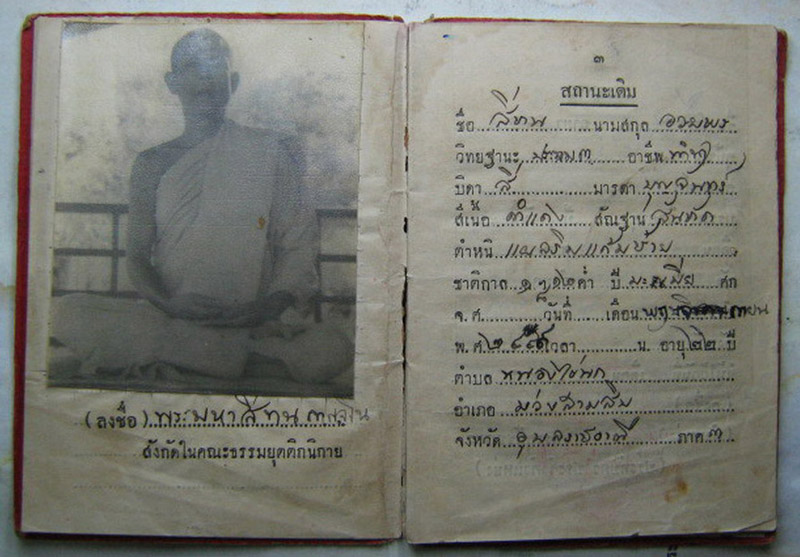 (ลงชื่อ) พระมหาสีทน
สังกัดในคณะธรรมยุตติกนิกาย
๓
สถานะเดิม
ชื่อ สีทน นามสกุล
วิทยฐานะ อาชีพ ทำนา
บิดา สี มารดา บุญจันทร์
สีเนื้อ ดำแดง สัณฐาน สันทัด
ตำหนิ แผลริมแก้มซ้าย
ชาติกาล ปี มะเมีย ศก
จ.ศ. วันที่ เดือน
พ.ศ. เวลา น. อายุ ๒๒ ปี
ตำบล หนองไข่นก
อำเภอ ม่วงสามสิบ
จังหวัด อุบลราชธานี ภาค ๓